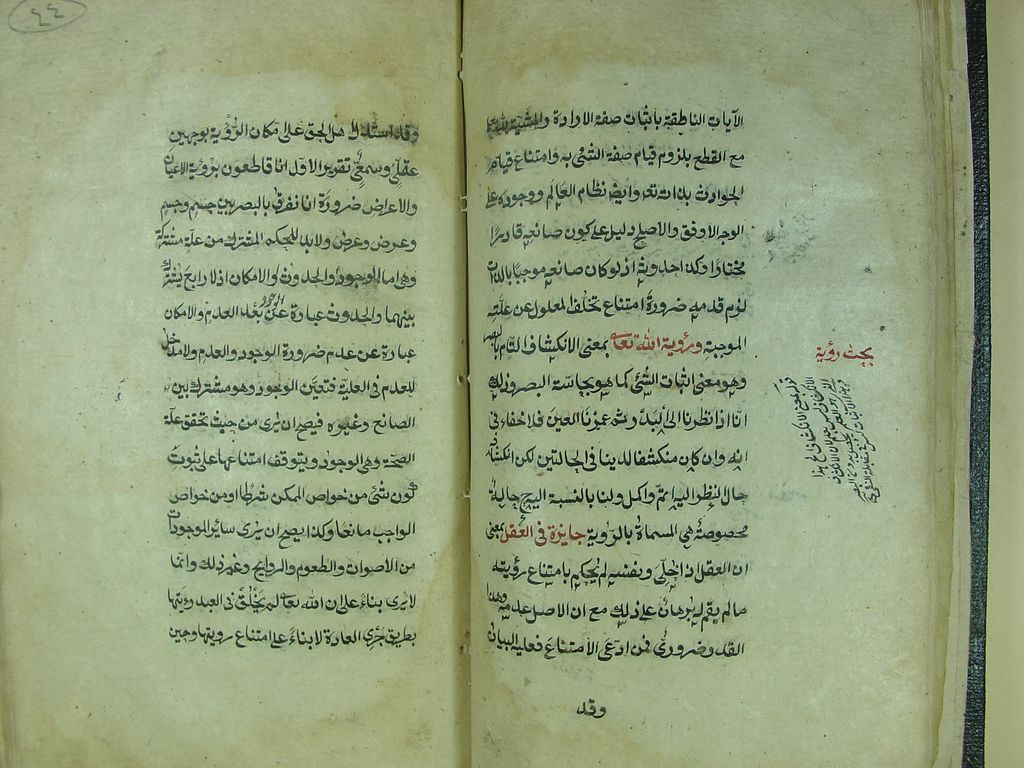 الآيات الناطقة باثبات صفة الارادة والمشية لله تعا
مع القطع بلزوم قيام صفة الشئ به وامتناع قيام
الحوادث بذاته تعا وايضا نظام العالم ووجوده على
الوجه الاوفق والاصلح دليل على كون صانعه قادرا
مختارا وكذا حدوثه اذ لو كان صانعه موجبا بالذات
لزم قدمه ضرورة امتناع تخلف المعلول عن علته
الموجبة ورؤية الله تعا بمعنى الانكشاف التام بالبصر
وهو معنى اثبات الشئ كما هو بحاسة البصر وذلك
انا اذا نظرنا الى البدر ثم غمزنا العين فلا خفاء فى
انه وان كان منكشفا لدينا فى الحالتين لكن انكشافه
حال النظر اليه اتم واكمل ولنا بالنسبة اليه حالة
مخصوصة هى المسماة بالرؤية جايزة فى العقل بمعنى
ان العقل اذا خلى ونفسه لم يحكم بامتناع رؤيته
ما لم يقم له برهان على ذلك مع ان الاصل عدمه وهذا
القدر ضرورى فمن ادعى الامتناع فعليه البيان
وقد
بحث رؤية
٤٤
وقد استدل اهل الحق على امكان الرؤية بوجهين
عقلى وسمعى تقرير الاول انا قاطعون برؤية الاعيان
والاعراض ضرورة انا نفرق بالبصر بين جسم وجسم
وعرض وعرض ولا بد للحكم المشترك من علة مشتركة
وهى اما الوجود او الحدوث او الامكان اذ لا رابع يشترك
بينهما والحدوث عبارة عن الوجود بعد العدم والامكان
عبارة عن عدم ضرورة الوجود والعدم ولا مدخل
للعدم فى العلية فتعين الوجود وهو مشترك بين
الصانع وغيره فيصح ان يرى من حيث تحقق علة
الصحة وهى الوجود ويتوقف امتناعها على ثبوت
كون شئ من خواص الممكن شرطا او من خواص
الواجب مانعا وكذا يصح ان يرى سائر الموجودات
من الاصوات والطعوم والروايح وغير ذلك وانما
لا يرى بناء على ان الله تعا لم يخلق فى العبد رؤيتها
بطريق جرى العادة لا بناء على امتناع رؤيتها وحين